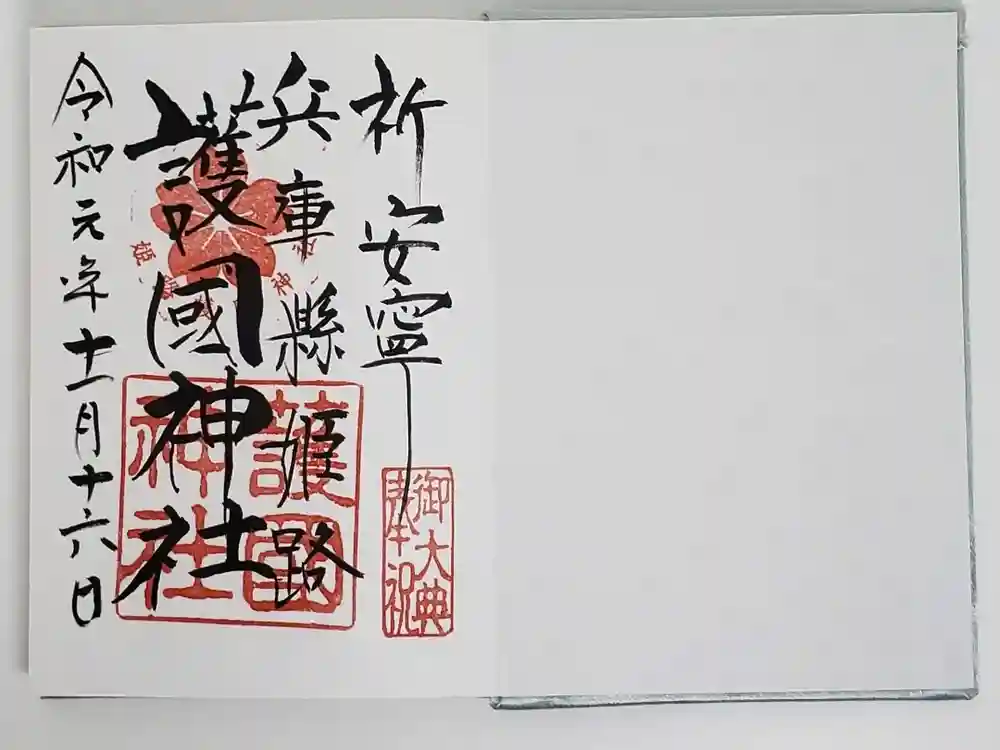 祈安寧
兵庫縣姫路
護國神社
令和元年十一月十六日
御大典
奉祝
護国
神社